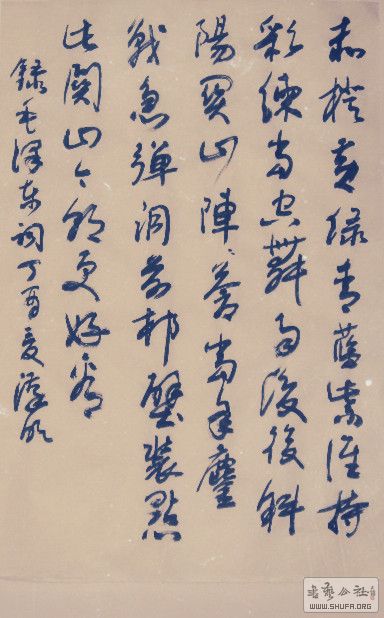 赤橙黄绿青蓝紫谁持
彩練當空舞雨後復斜
陽関山陣〻蒼當年鏖
戰急彈洞前村壁裝點
此関山今朝更好看
録毛澤东詞丁酉夏
书艺公社
WWW.SHUFA.ORG